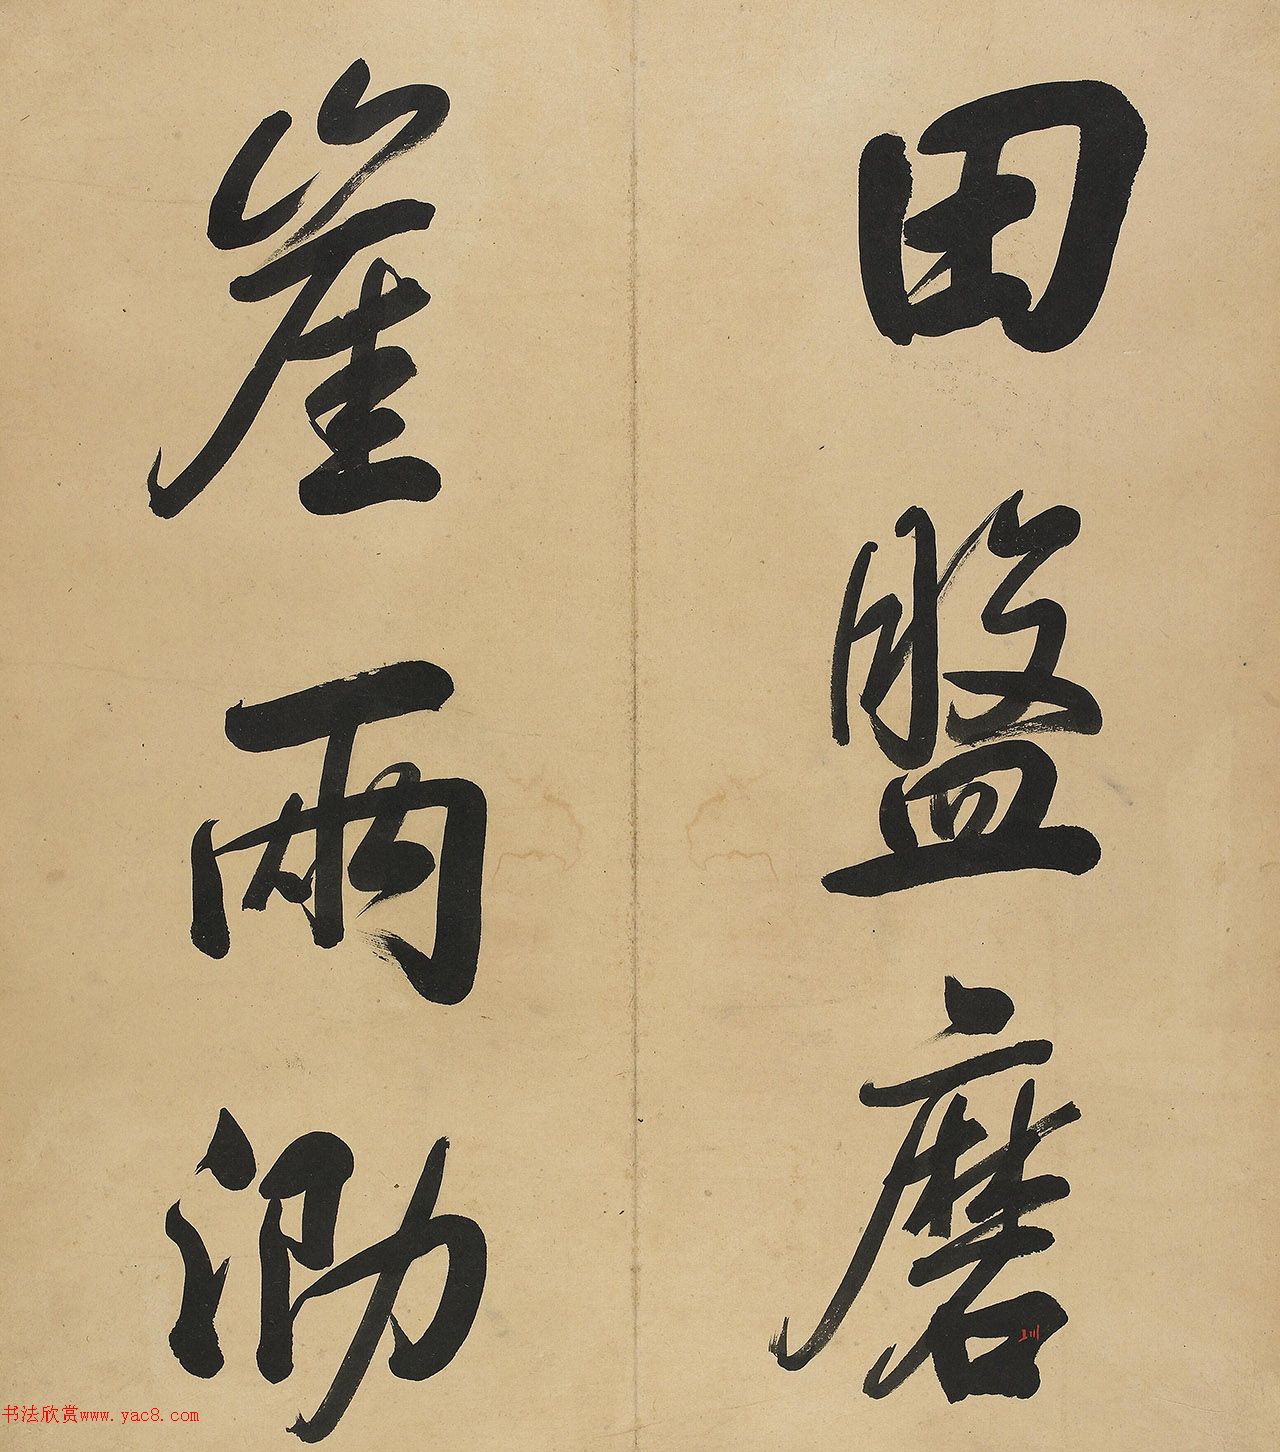 田盤磨
崖兩泐
书法欣赏www.yac8.com